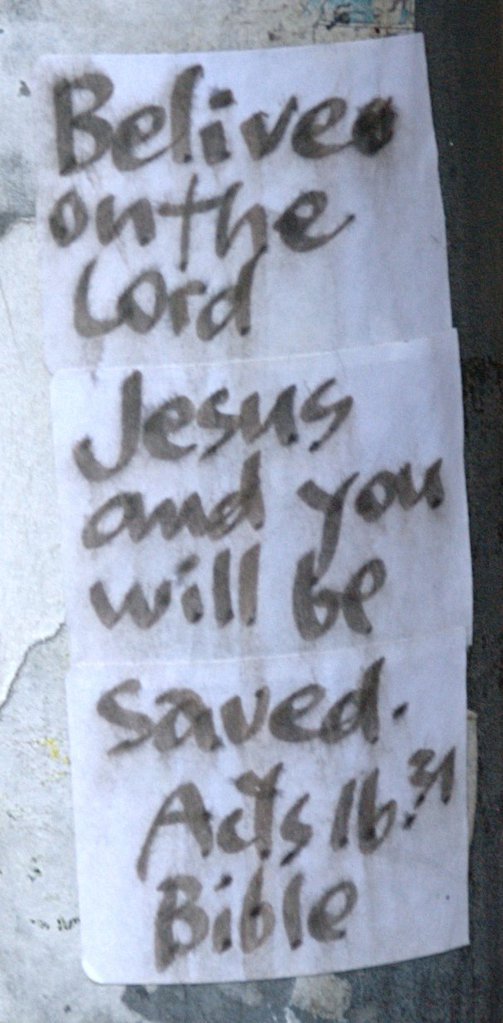 Belive
on the
Lord
Jesus
and you
will be
saved.
Acts 16:31
Bible